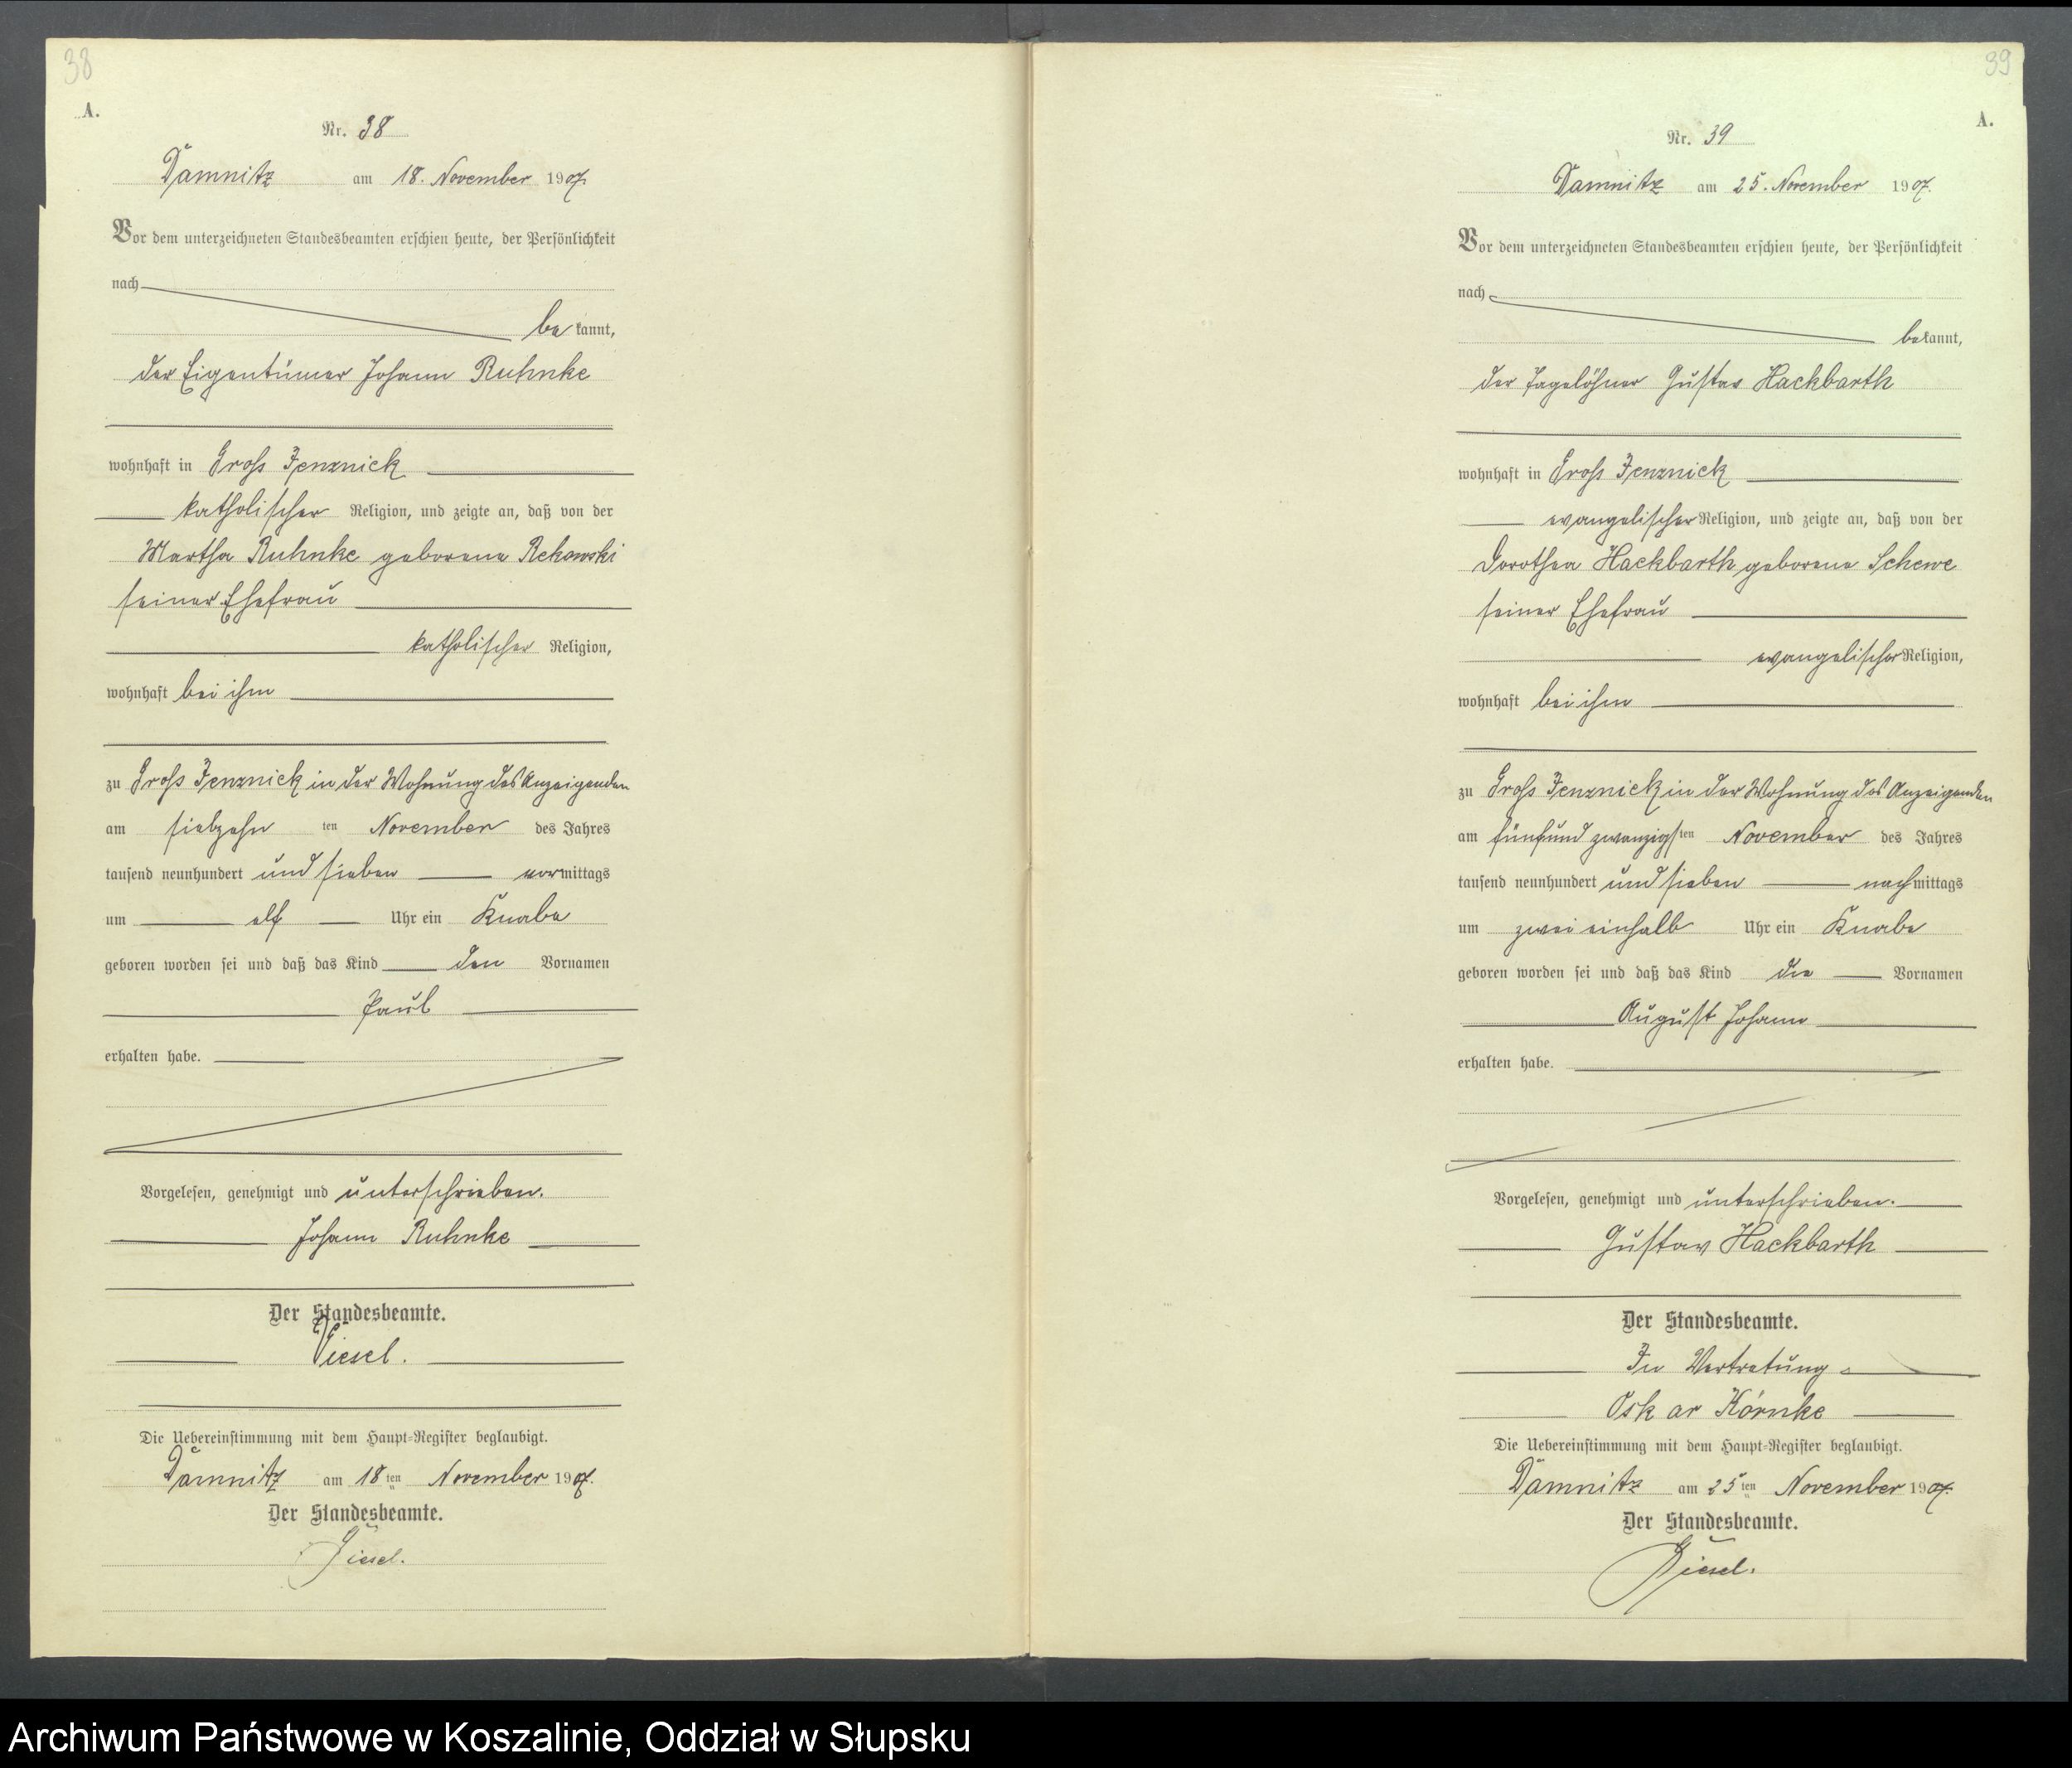 38
A.
Nr. 38
Damnitz am 18. November 1907.
Vor dem unterzeichneten Standesbeamten erschien heute, der Persönlichkeit
nach
bekannt,
der Eigentümer Johann Ruhnke
wohnhaft in Groß Jenznick
katholischer Religion, und zeigte an, daß von der
Martha Ruhnke geborene Rekowski
seiner Ehefrau
katholischer Religion,
wohnhaft bei ihm
zu Groß Jenznick in der Wohnung des Anzeigenden
am siebzehn ten November des Jahres
tausend neunhundert und sieben vormittags
um elf Uhr ein Knabe
geboren worden sei und daß das Kind den Vornamen
Paul
erhalten habe.
Vorgelesen, genehmigt und unterschrieben.
Johann Ruhnke
Der Standesbeamte.
Diesel.
Die Uebereinstimmung mit dem Haupt-Register beglaubigt.
Damnitz am 18ten November 1907.
Der Standesbeamte.
Diesel.
39
A.
Nr. 39
Damnitz am 25. November 1907.
Vor dem unterzeichneten Standesbeamten erschien heute, der Persönlichkeit
nach
bekannt,
der Tagelöhner Gustav Hackbarth
wohnhaft in Groß Jenznick
evangelischer Religion, und zeigte an, daß von der
Dorothea Hackbarth geborene Schewe
seiner Ehefrau
evangelischer Religion,
wohnhaft bei ihm
zu Groß Jenznick in der Wohnung des Anzeigenden
am fünfundzwanzigsten November des Jahres
tausend neunhundert und sieben nachmittags
um zwei einhalb Uhr ein Knabe
geboren worden sei und daß das Kind die Vornamen
August Johann
erhalten habe.
Vorgelesen, genehmigt und unterschrieben.
Gustav Hackbarth
Der Standesbeamte.
In Vertretung
Oskar Körnke
Die Uebereinstimmung mit dem Haupt-Register beglaubigt.
Damnitz am 25ten November 1907.
Der Standesbeamte.
Diesel.
Archiwum Państwowe w Koszalinie, Oddział w Słupsku